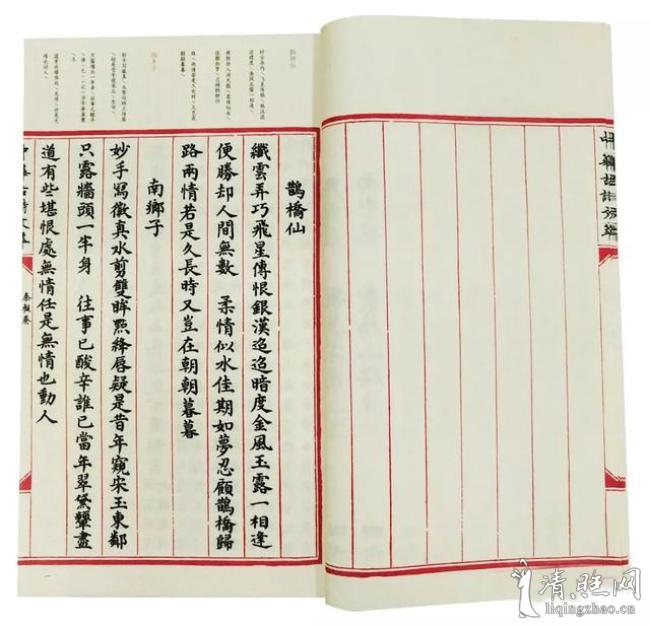 鵲橋仙
纖雲弄巧飛星傳恨銀漢迢迢暗度金風玉露一相逢
便勝却人間無數　柔情似水佳期如夢忍顧鵲橋歸
路兩情若是久長時又豈在朝朝暮暮
南鄉子
妙手寫徽真水剪雙眸點絳唇疑是昔年窺宋玉東鄰
只露牆頭一半身　往事已酸辛誰已當年翠黛顰盡
道有些堪恨處無情任是無情也動人
秦觀卷
清旺网
liqingzhao.cn